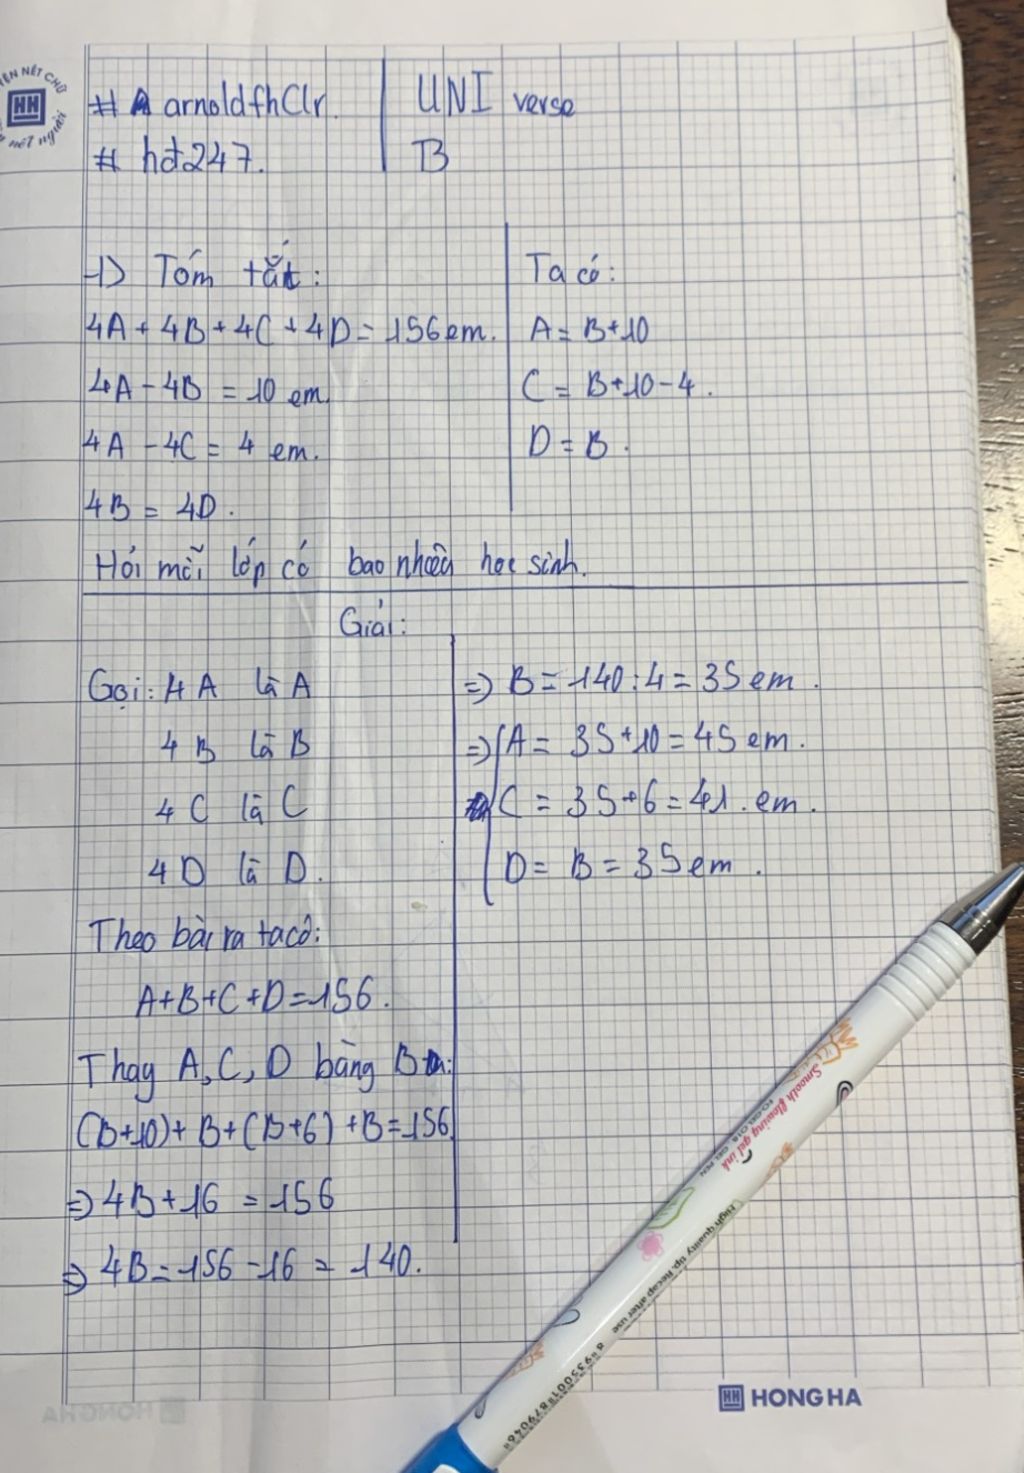 # arnoldfhClr.
# hđ247.
UNI verse
B
Tóm tắt:
4A + 4B + 4C + 4D = 156 em.
4A - 4B = 10 em.
4A - 4C = 4 em.
4B = 4D.
Ta có:
A = B+10
C = B+10-4.
D = B.
Hỏi mỗi lớp có bao nhiêu học sinh.
Giải:
Gọi: 4A là A
4B là B
4C là C
4D là D.
Theo bài ra ta có:
A+B+C+D=156.
Thay A, C, D bằng B:
(B+10)+ B+(B+6) +B=156
=> 4B+16 = 156
=> 4B = 156 -16 = 140.
=> B = 140 : 4 = 35 em.
=> A = 35+10 = 45 em.
C = 35+6 = 41. em.
D = B = 35 em.
Smooth flowing gel ink
High quality tip. Recap after use
HH HONG HA
HH
nết người